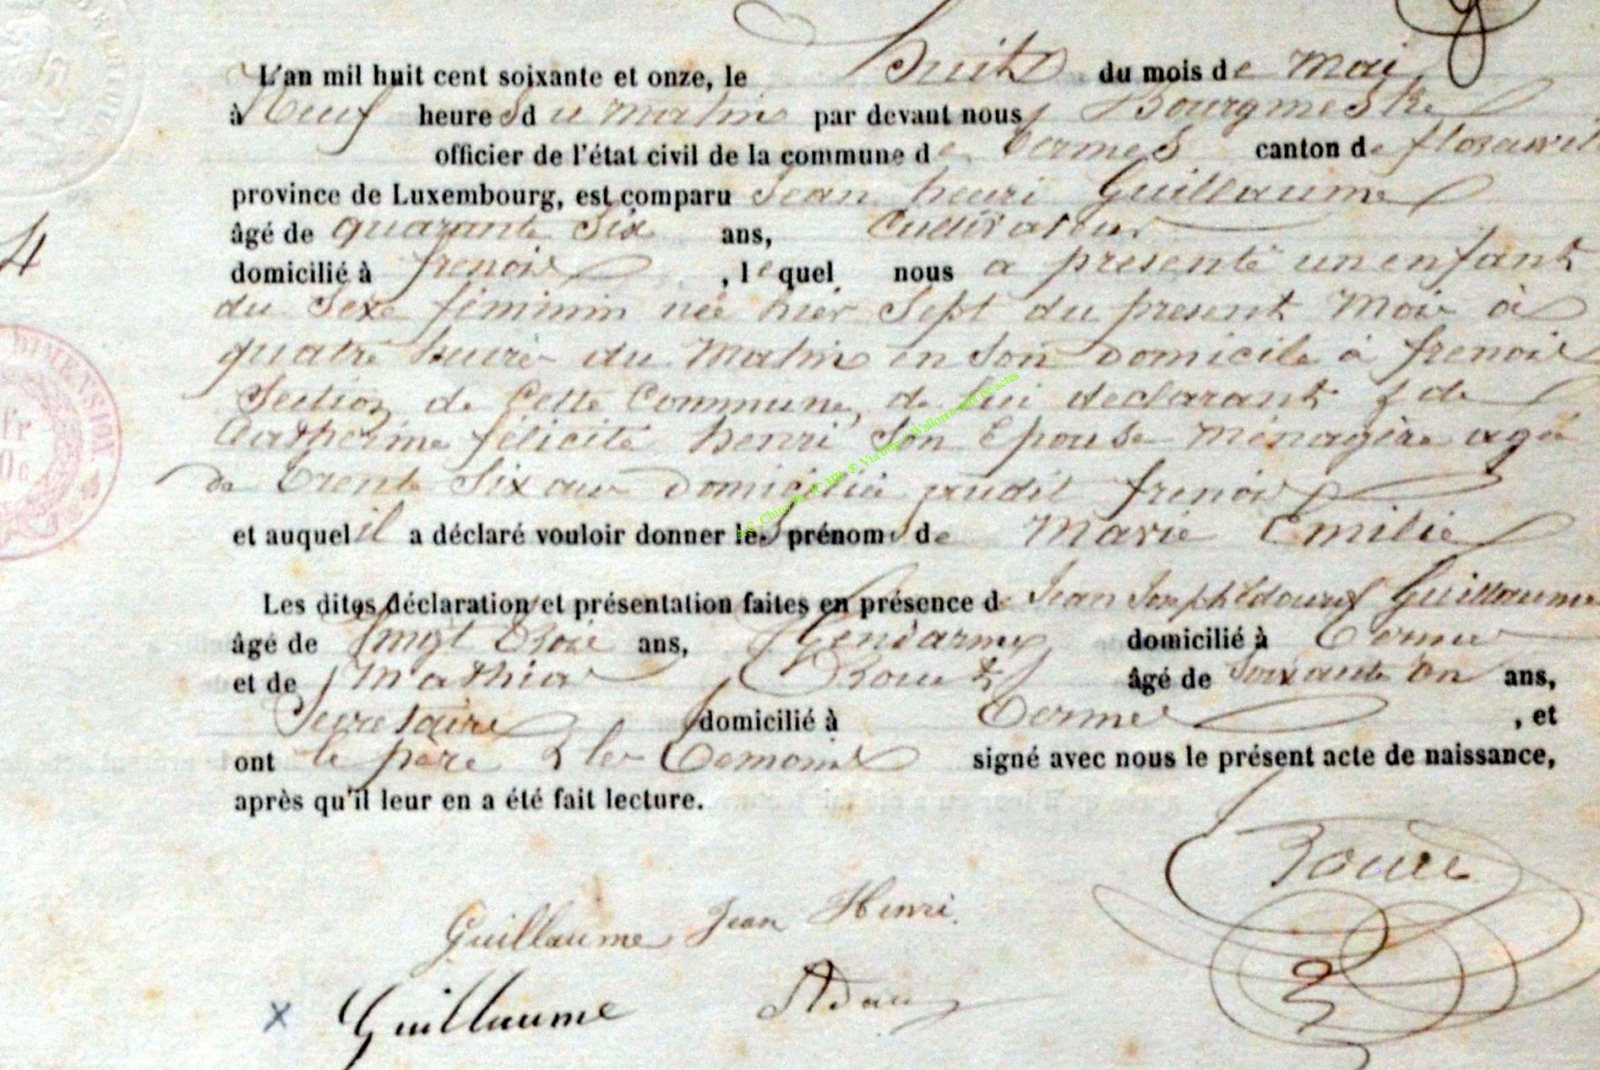 L'an mil huit cent soixante et onze, le huit du mois de Mai
à Neuf heures du matin par devant nous Bourgmestre
officier de l'état civil de la commune de Termes canton de florenvil
province de Luxembourg, est comparu Jean henri Guillaume
âgé de quarante Six ans, Cultivateur
4
domicilié à frenois, lequel nous a présenté un enfant
du Sexe féminin née hier Sept du present Mois à
DIMENSION
quatre heures du Matin en Son Domicile à frenois
Section de Cette Commune, de lui declarant & de
fr
Catherine félicité henri Son Epouse Ménagère agée
de Trente Six ans Domiciliée audit frenois
et auquel il a déclaré vouloir donner les prénoms de Marie Emilie
Les dites déclaration et présentation faites en présence de Jean Joseph Edouard Guillaume
âgé de Vingt Trois ans, Gendarme domicilié à Termes
et de Mathias âgé de Soixante un ans,
Secretaire domicilié à Termes, et
ont le père & les Temoins signé avec nous le présent acte de naissance,
après qu'il leur en a été fait lecture.
Guillaume Jean Henri.
x Guillaume